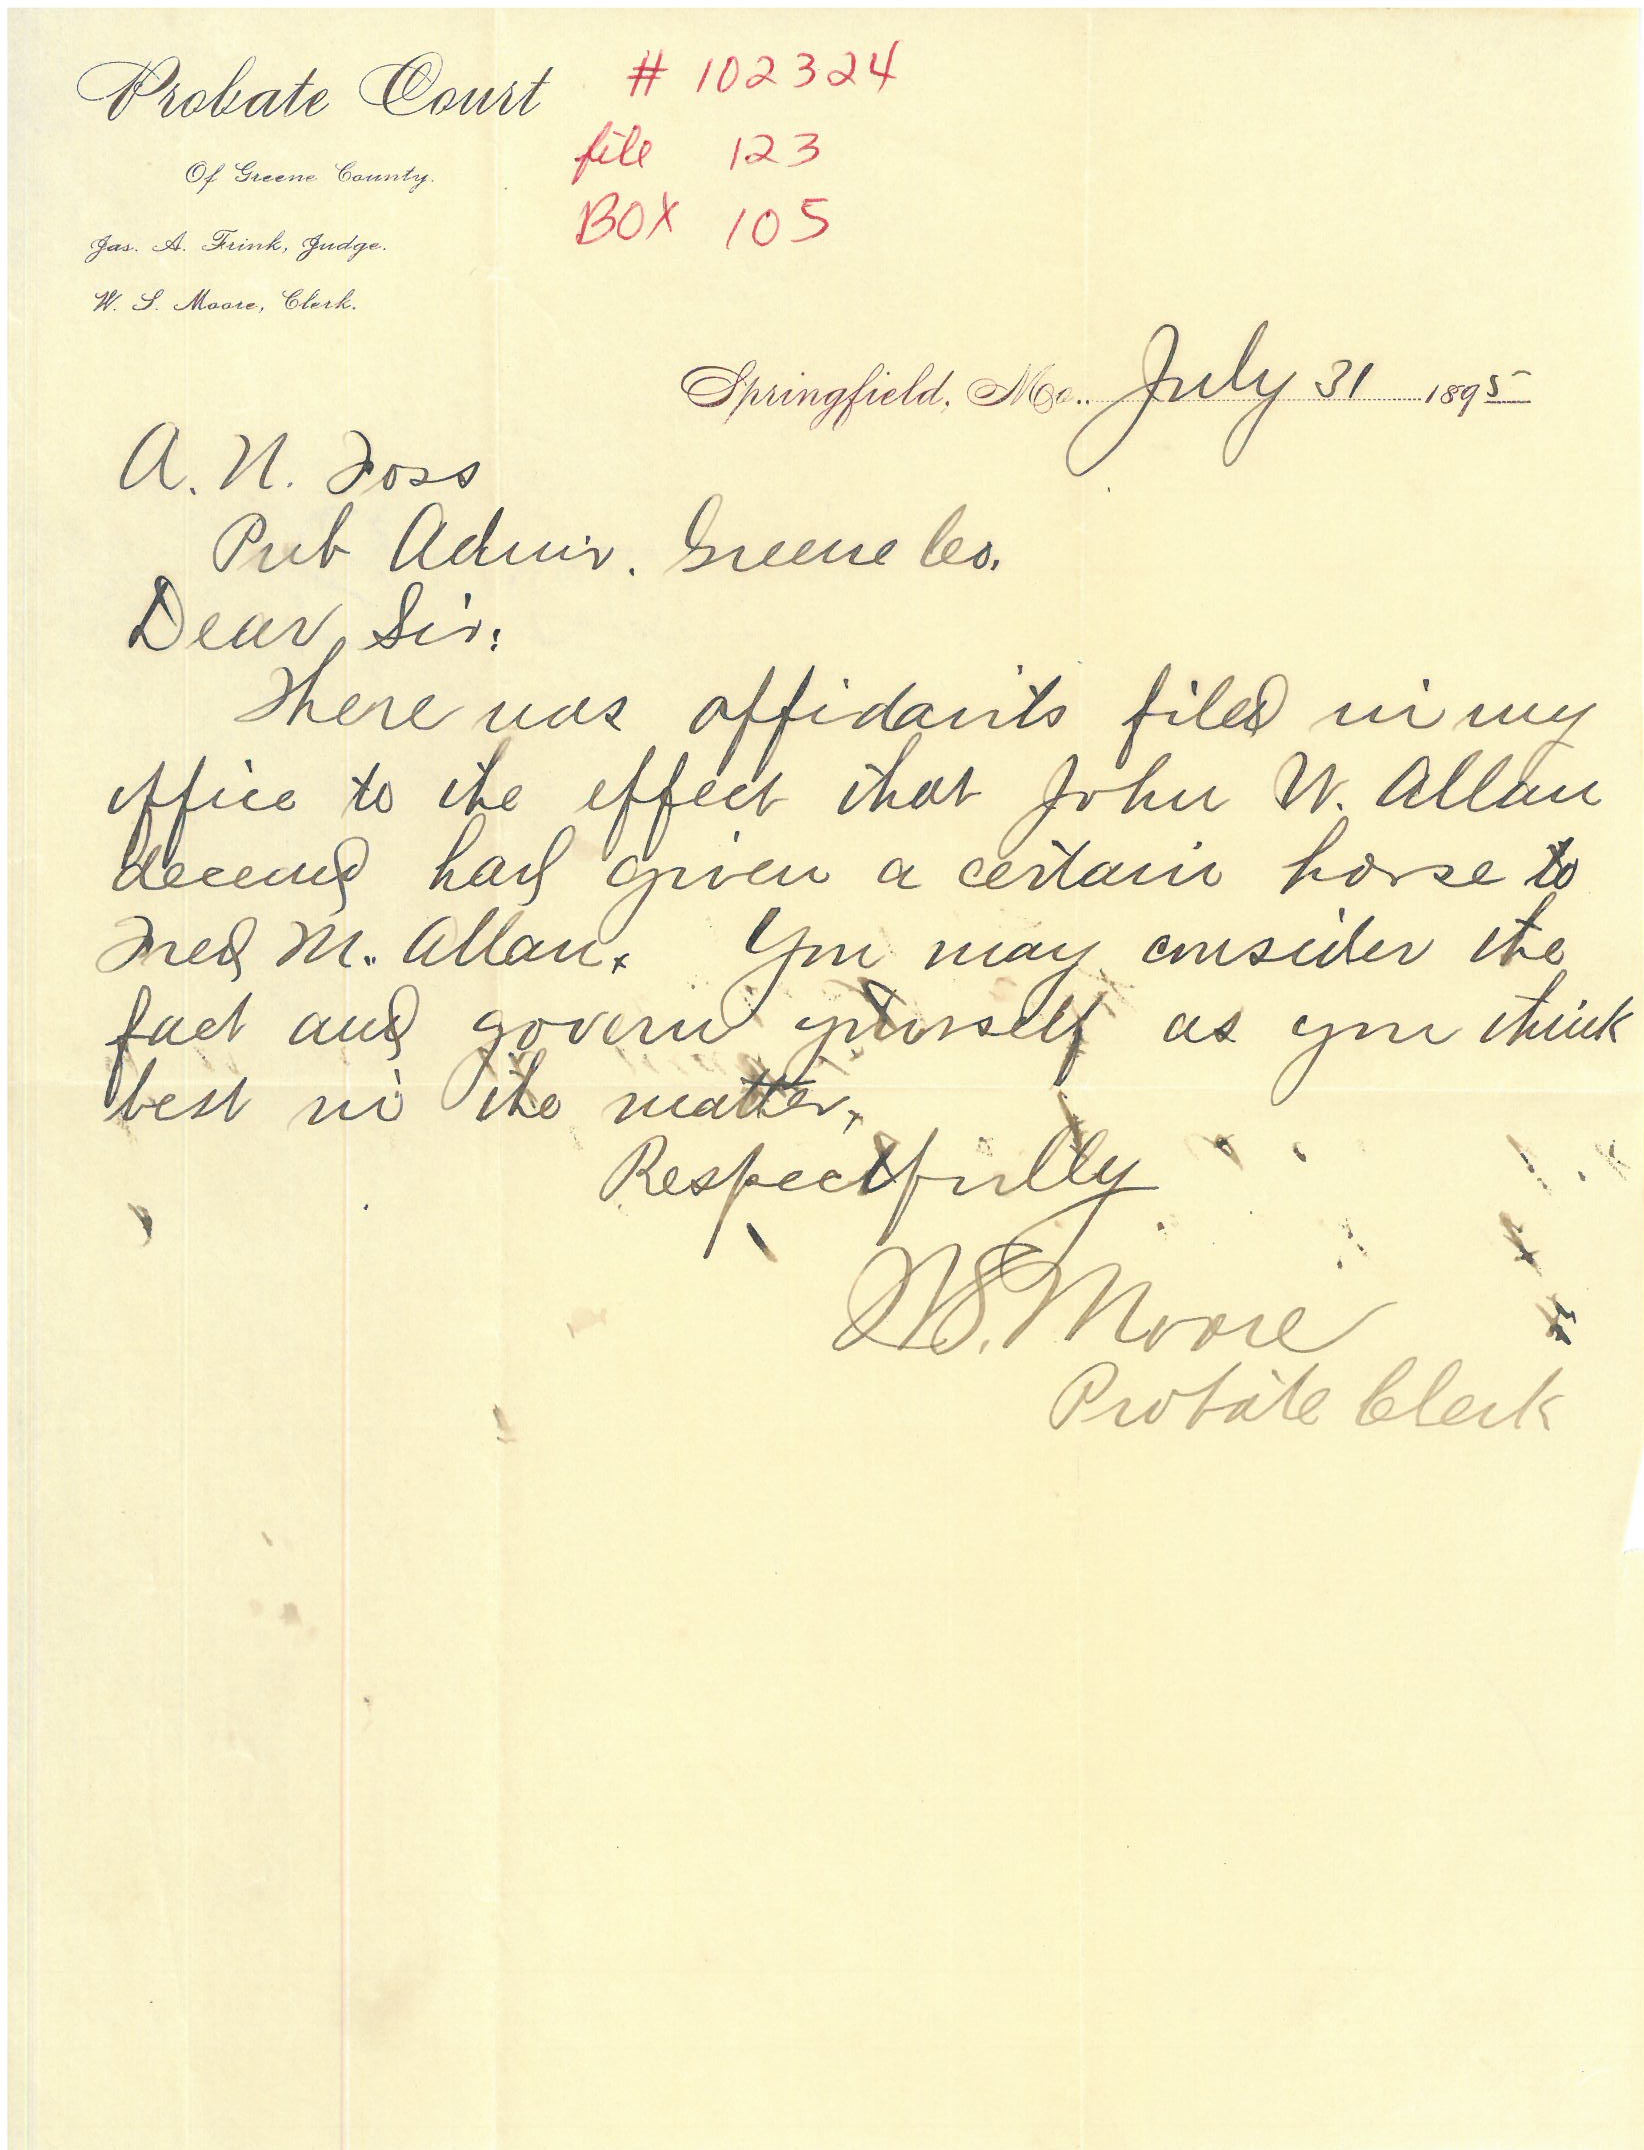 Probate Court
# 102324
Of Greene County.
file 123
Jas. A. Frink, Judge.
BOX 105
W. S. Moore, Clerk.
Springfield, Mo.. July 31 1895
A. N. Foss
Pub Admir. Greene Co.
Dear Sir:
There was affidavits filed in my
office to the effect that John W. Allan
deceased had given a certain horse to
Fred M. Allan. You may consider the
fact and govern yourself as you think
best in the matter.
Respectfully
W.S. Moore
Probate Clerk